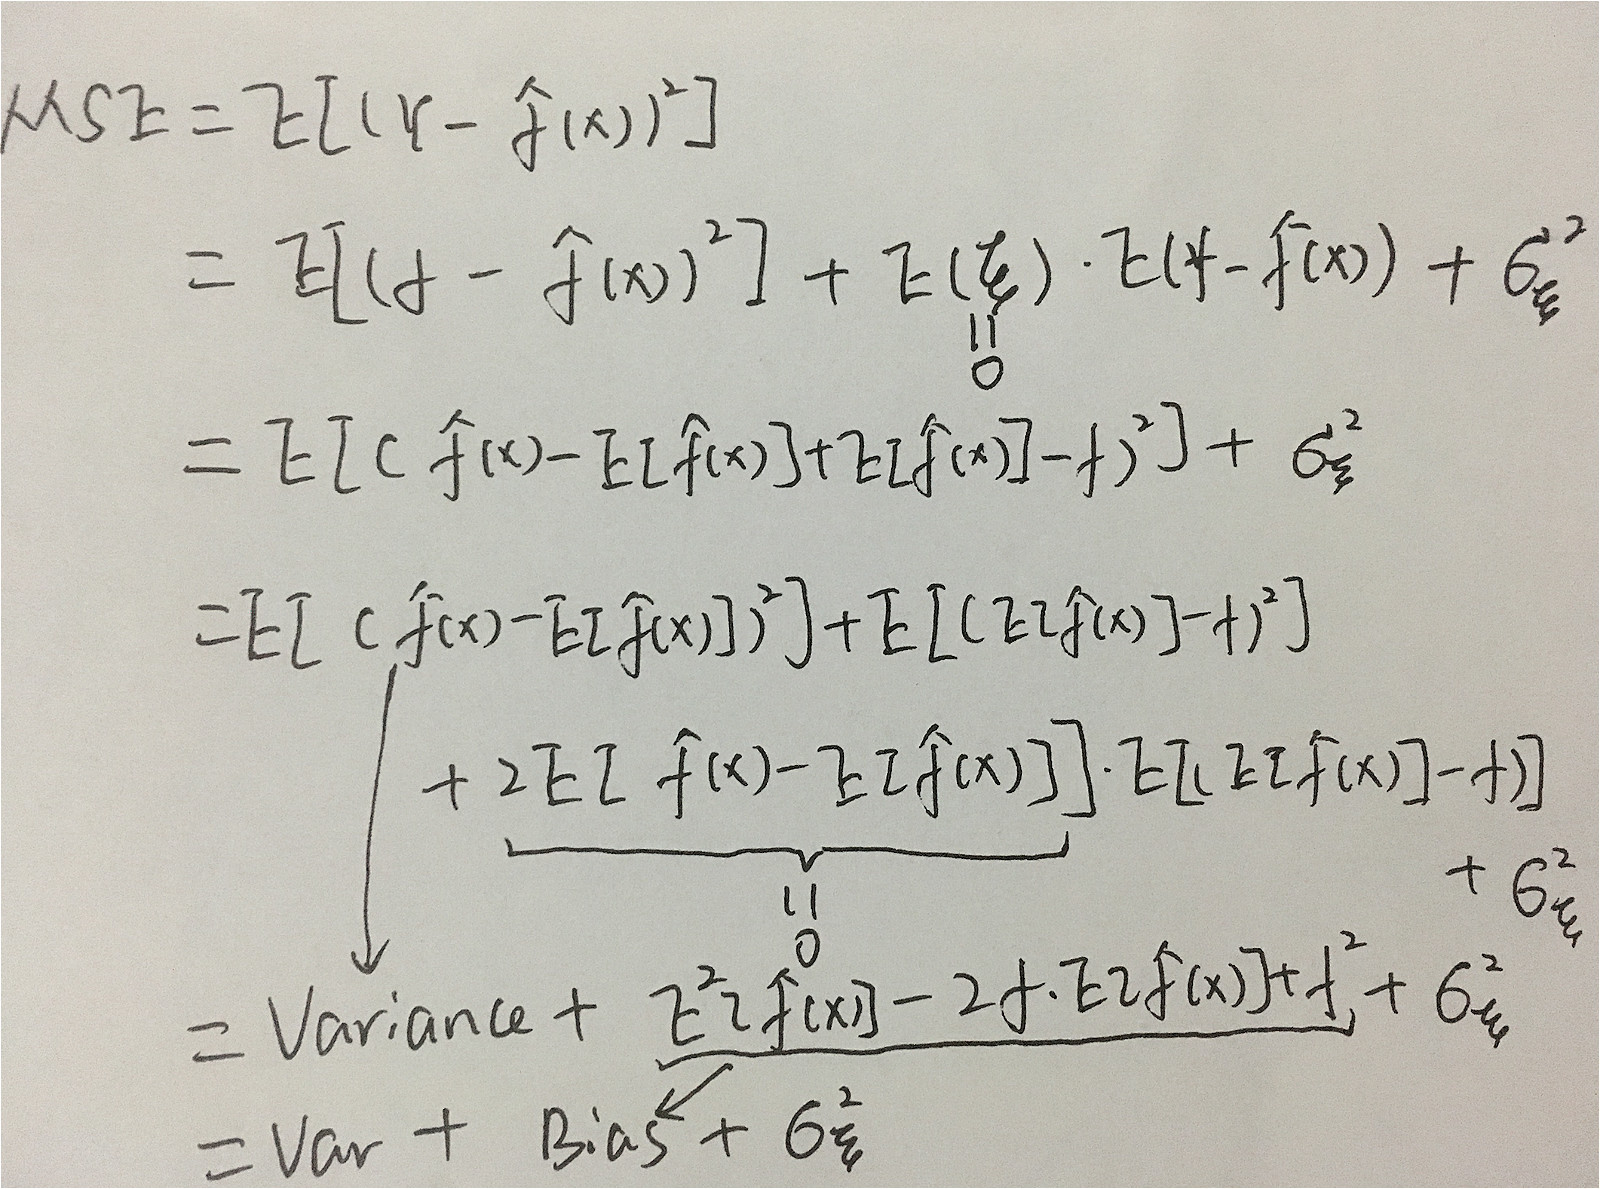 MSE = E[(Y - f̂(x))²]
= E[(f - f̂(x))²] + E(ξ) · E(Y - f̂(x)) + σ²_ξ
=
0
= E[(f̂(x) - E[f̂(x)] + E[f̂(x)] - f)²] + σ²_ξ
= E[(f̂(x) - E[f̂(x)])²] + E[(E[f̂(x)] - f)²]
+ 2E[f̂(x) - E[f̂(x)]] · E[(E[f̂(x)] - f)]
+ σ²_ξ
=
0
= Variance + E²[f̂(x)] - 2f · E[f̂(x)] + f² + σ²_ξ
= Var + Bias + σ²_ξ